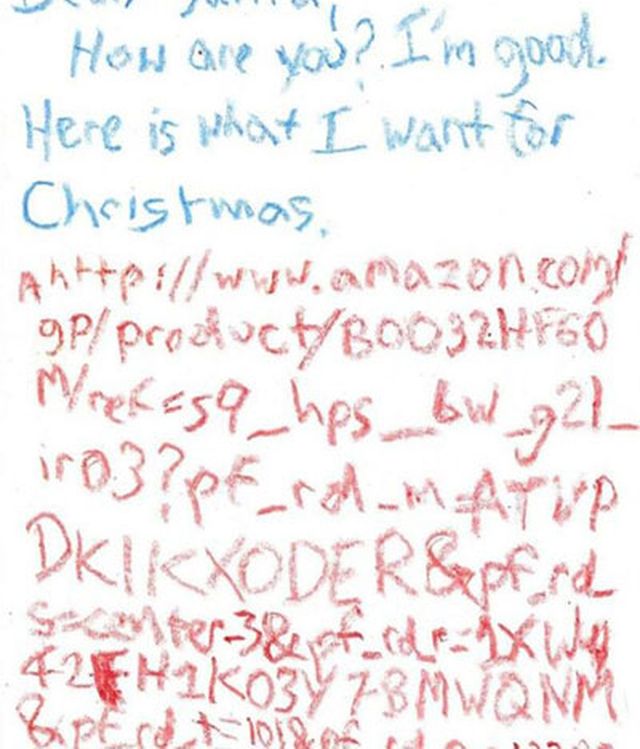 Dear Santa,
How are you? I'm good.
Here is what I want for
Christmas.
A http://www.amazon.com/
gp/product/B0032HF60
M/ref=s9_hps_bw_g21_
ir03?pf_rd_m=ATVP
DKIKX0DER&pf_rd_
s=center-3&pf_rd_r=1XWY
42FH1K03Y78MWQNM
&pf_rd_t=101&pf_rd